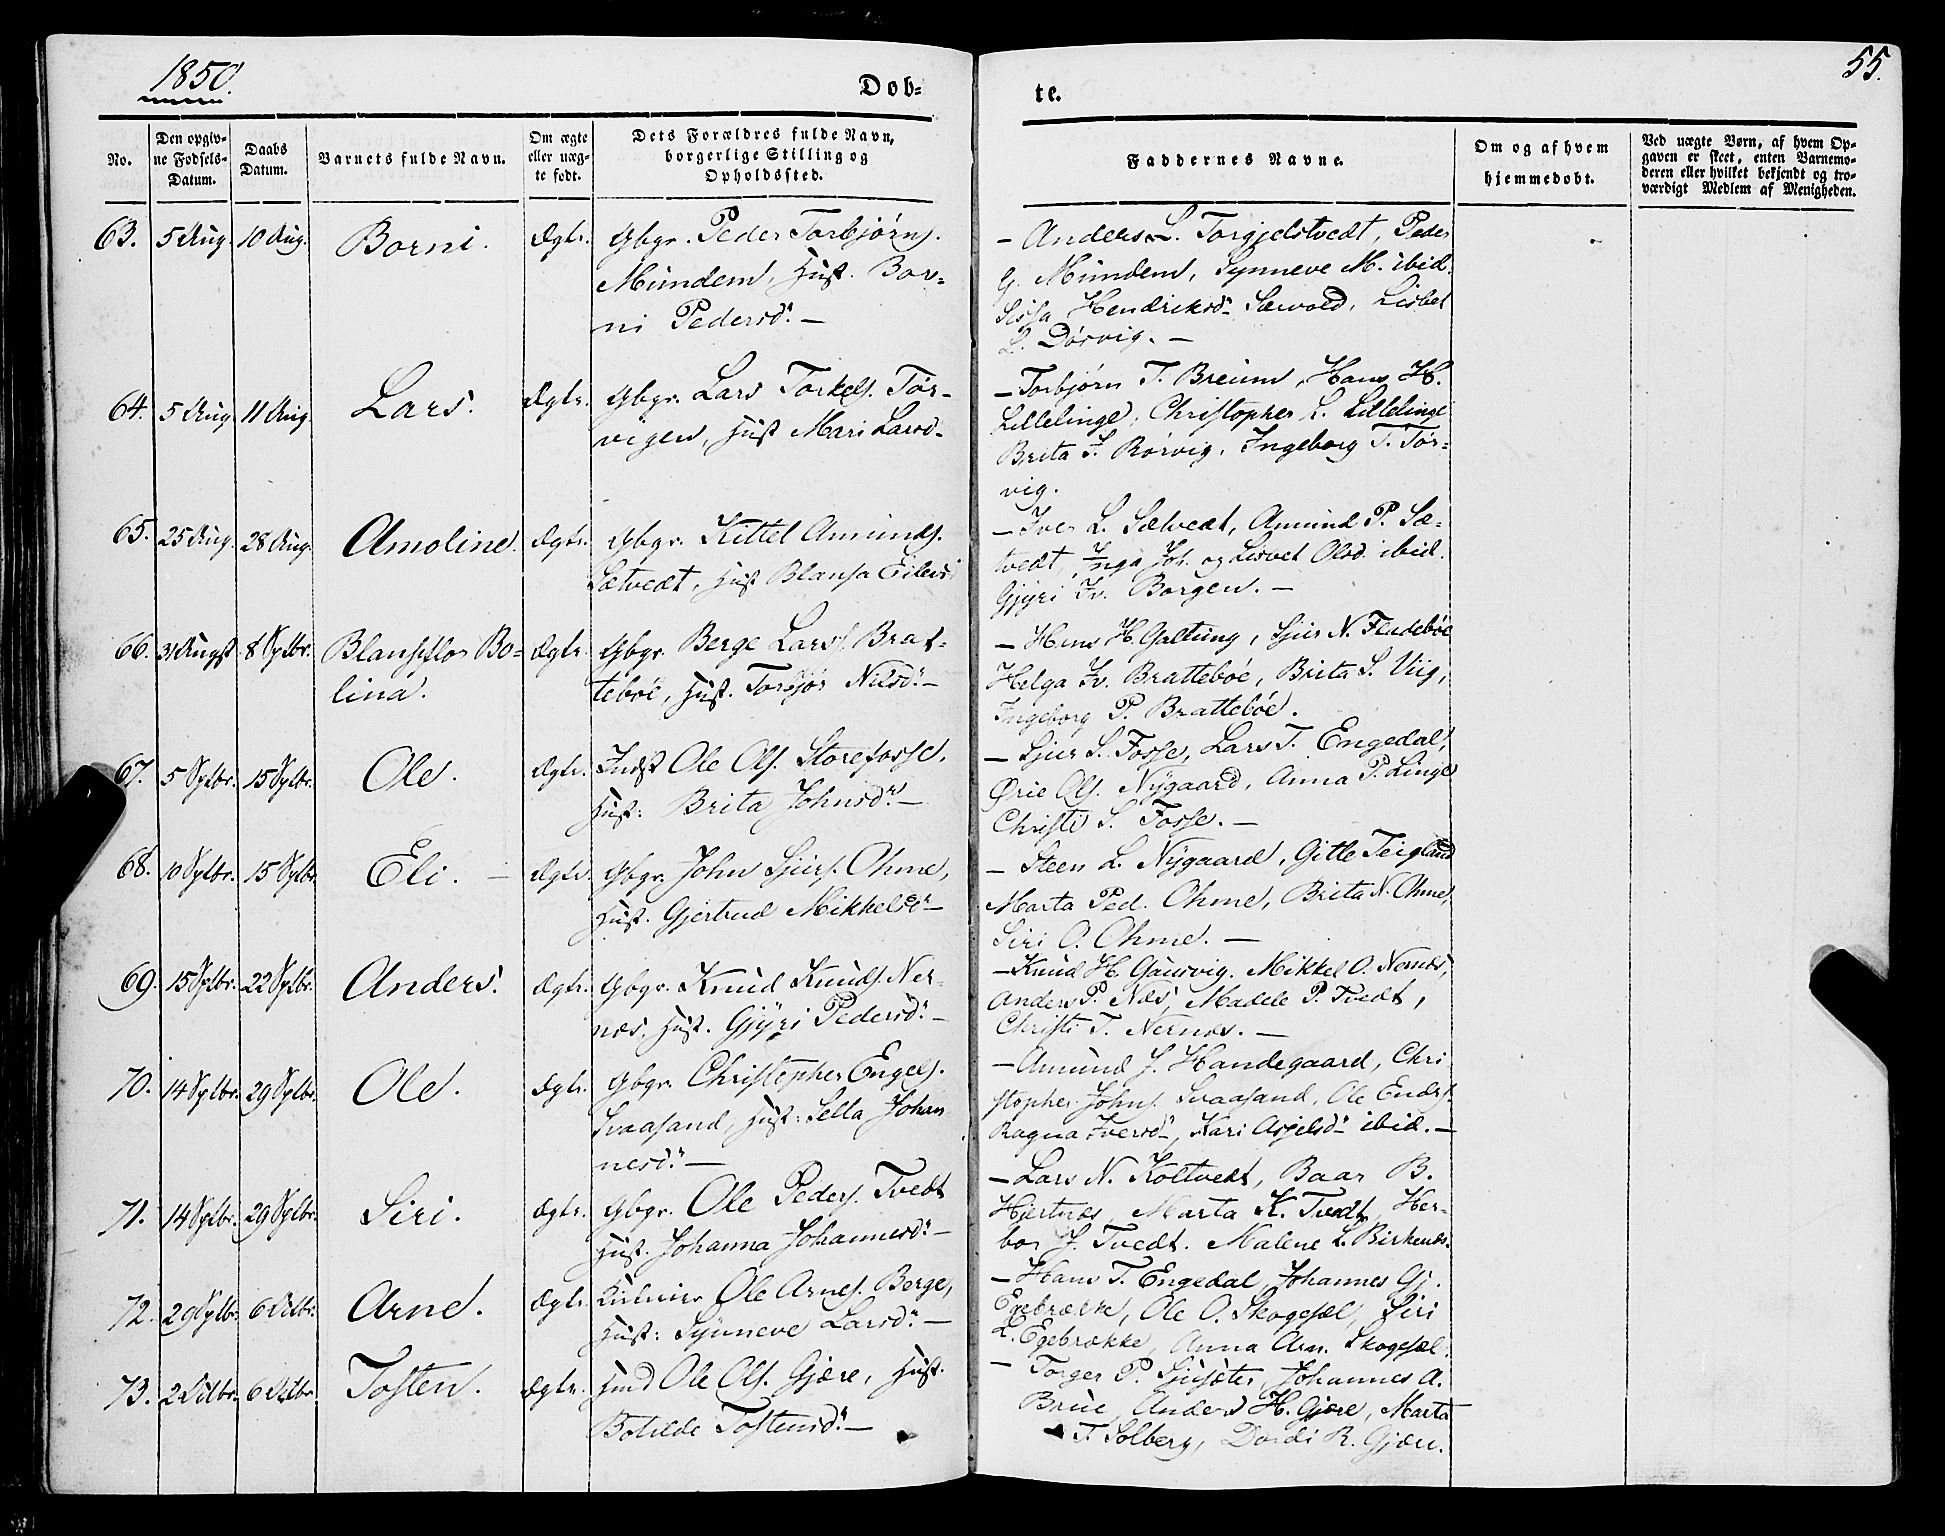 1850.
Døb-
te.
55.
No.
Den opgiv-
ne Fødsels-
Datum.
Daabs
Datum.
Barnets fulde Navn.
Om ægte
eller uæg-
te født.
Dets Forældres fulde Navn,
borgerlige Stilling og
Opholdssted.
Faddernes Navne.
Om og af hvem
hjemmedøbt.
Ved uægte Børn, af hvem Op-
gaven er skeet, enten Barnemo-
deren eller hvilket bekjendt og tro-
værdigt Medlem af Menigheden.
63. 5 Aug. 10 Aug. Borni. Ægte. Gbgr. Peder Torbjørns.
Mundem, Hust. Bor-
ni Pedersd. —
— Anders L. Torgjelstvedt, Peder
G. Mundem, Synneve M. ibid.
Sissa Hendriksd. Sævold, Lisbet
L. Dørvig. —
64. 5 Aug. 11 Aug. Lars. Ægte. Gbgr. Lars Torkels. Tør-
vigen, Hust. Mari Larsd.
— Torbjørn T. Breim, Hans H.
Lillelinge, Christopher L. Lillelinge
Brita J. Rørvig, Ingeborg T. Tør-
vig.
65. 25 Aug. 28 Aug. Amoline. Ægte. Gbgr. Kittel Amunds.
Sætvedt, Hust. Blansa Eilevsd
— Iver L. Sætvedt, Amund P. Sæ-
tvedt, Inga Joh. og Lisvet Olsd. ibid.
Gjyri Iv. Borgen. —
66. 31 Augst 8 Sptbr. Blanseflor Bo-
lina. Ægte. Gbgr. Berge Larss. Brat-
tebøe, Hust. Torbjør Nilsd. —
— Hans H. Galtung, Sjur N. Fladebøe
Helga Iv. Brattebøe, Brita S. Viig,
Ingeborg P. Brattebøe.
67. 5 Sptbr. 15 Sptbr. Ole. Ægte. Indst Ole Ols. Storefosse,
Hust: Brita Johnsd. —
— Sjur S. Fosse, Lars T. Engedal,
Ørie Ols. Nygaard, Anna P. Linge
Christi S. Fosse. —
68. 10 Sptbr. 15 Sptbr. Eli. — Ægte. Gbgr. John Sjurs. Ohme,
Hust. Gjertrud Mikkelsd —
— Steen L. Nygaard, Gitle Teigland
Marta Ped. Ohme, Brita N. Ohme,
Siri O. Ohme. —
69. 15 Sptbr. 22 Sptbr. Anders. Ægte. Gbgr. Knud Knuds. Ner-
næs, Hust. Gjyri Pedersd. —
— Knud H. Gaursvig. Mikkel O. Nernæs,
Anders P. Næs, Madele P. Tvedt,
Christi T. Nernæs. —
70. 14 Sptbr. 29 Sptbr. Ole. Ægte. Gbgr. Christopher Engels.
Svaasand, Hust: Sella Johan
nesd. —
— Amund J. Handegaard, Chri
stopher Johns. Svaasand, Ole Endrs.
Ragna Iversd., Kari Asjelsd. ibid. —
71. 14 Sptbr. 29 Sptbr. Siri. Ægte. Gbgr. Ole Peders. Tvedt
Hust. Johanna Johannesd. —
— Lars N. Koltvedt, Baar B.
Hjertnæs, Marta K. Tvedt, Her-
bor J. Tvedt. Malene L. Birkenæs.
72. 29 Sptbr. 6 Octbr. Arne. Ægte. Ole Arnes. Berge,
Hust: Synneve Larsd. —
— Hans T. Engedal, Johannes Gj.
Egebrække, Ole O. Skogesæl, Siri
L. Egebrække, Anna Arn. Skogesæl.
73. 2 Octbr. 6 Octbr. Tosten. Ægte. Ole Ols. Gjære, Hust.
Botilde Tostensd. —
— Torger P. Sjusæter, Johannes A.
Brue, Anders H. Gjære, Marta
T. Solberg, Dordi R. Gjære.